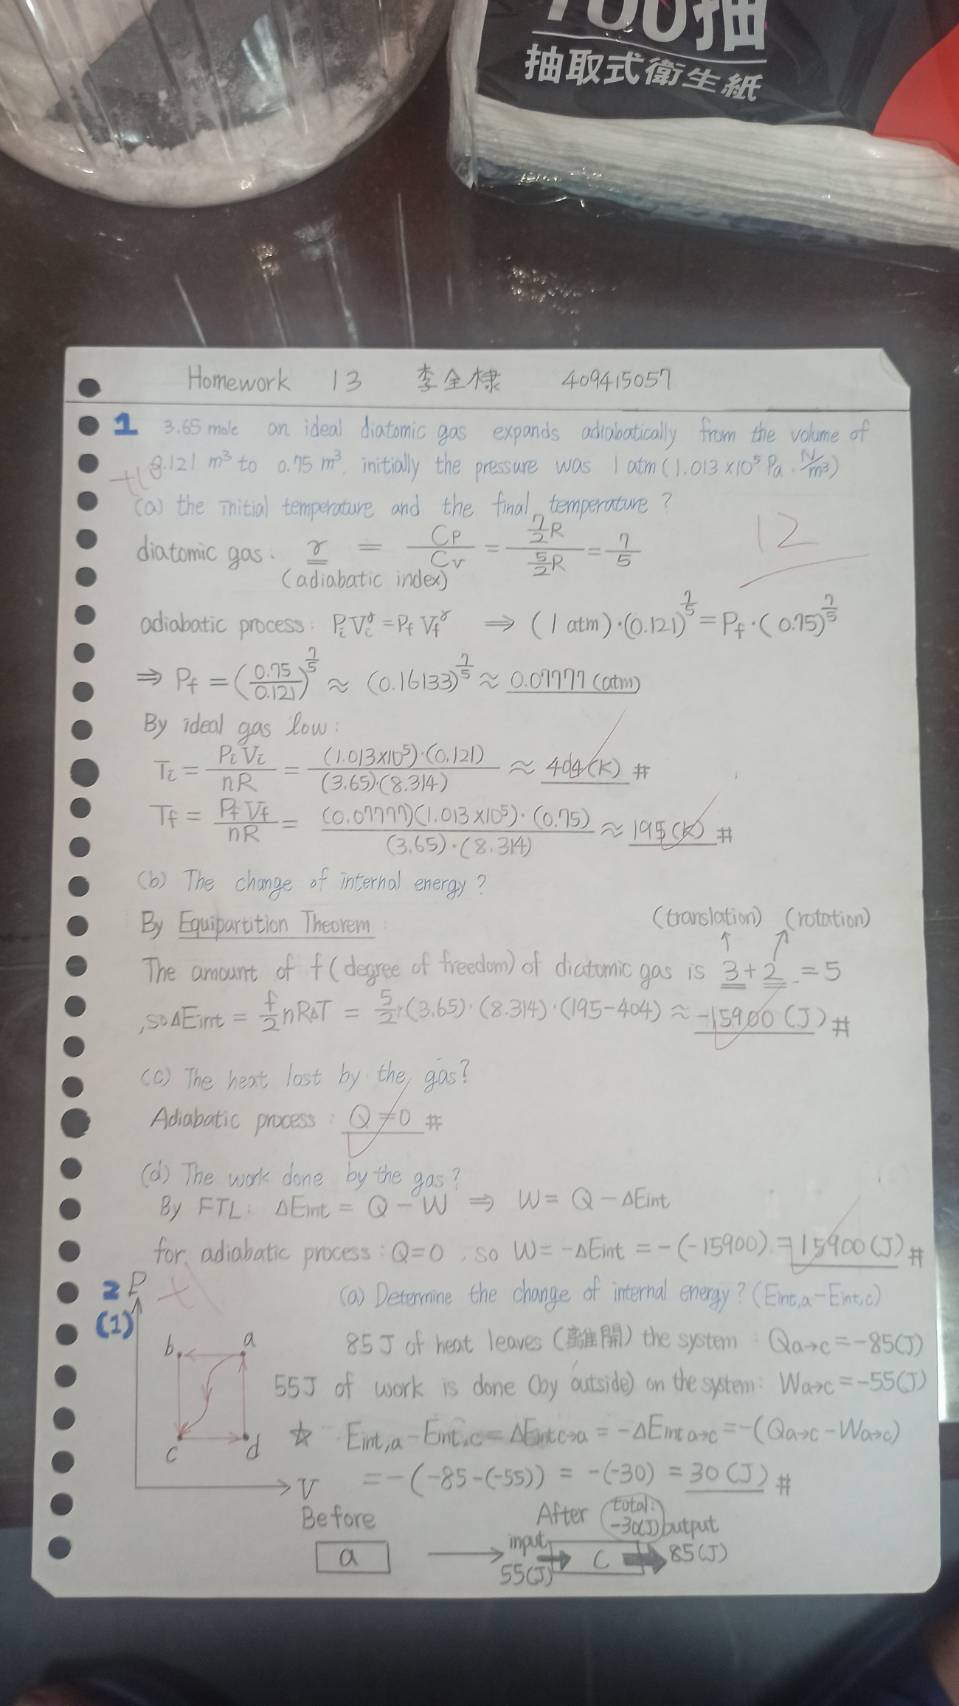 100抽
抽取式衛生紙
Homework 13 李全棣 409415057
1 3.65 mole an ideal diatomic gas expands adiabatically from the volume of
0.121 m³ to 0.75 m³, initially the pressure was 1 atm (1.013×10⁵ Pa
(a) the initial temperature and the final temperature?
12
diatomic gas. γ = Cp/Cv = (7/2 R)/(5/2 R) = 7/5
(adiabatic index)
adiabatic process: PᵢVᵢ^γ = Pf Vf^γ ⇒ (1 atm)·(0.121)^(7/5) = Pf·(0.75)^(7/5)
⇒ Pf = (0.75/0.121)^(7/5) ≈ (0.16133)^(7/5) ≈ 0.07777 (atm)
By ideal gas low:
Tᵢ = PᵢVᵢ/nR = (1.013×10⁵)·(0.121)/(3.65)·(8.314) ≈ 404 (K) #
Tf = PfVf/nR = (0.07777)(1.013×10⁵)·(0.75)/(3.65)·(8.314) ≈ 195 (K) #
(b) The change of internal energy?
By Equipartition Theorem: (translation) (rotation)
The amount of f (degree of freedom) of diatomic gas is 3+2 = 5
, so ΔEint = f/2 nRΔT = 5/2·(3.65)·(8.314)·(195-404) ≈ -15900 (J) #
(c) The heat lost by the gas?
Adiabatic process: Q=0 #
(d) The work done by the gas?
By FTL: ΔEint = Q - W ⇒ W = Q - ΔEint
for adiabatic process: Q=0, so W = -ΔEint = -(-15900) = 15900 (J) #
2 P (a) Determine the change of internal energy? (Eint,a - Eint,c)
(1)
b a 85 J of heat leaves (離開) the system: Qa→c = -85(J)
55J of work is done (by outside) on the system: Wa→c = -55(J)
c d ☆ Eint,a - Eint,c = ΔEint c→a = -ΔEint a→c = -(Qa→c - Wa→c)
V = -(-85-(-55)) = -(-30) = 30 (J) #
Before After total: -30(J) output
a input 55(J) C 85(J)